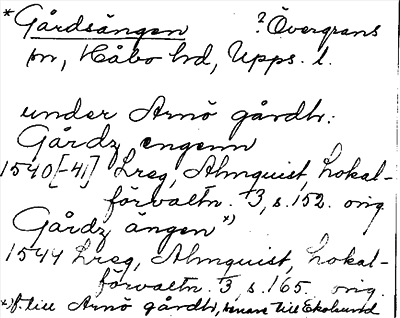 *Gårdsängen ? Övergrans
sn, Håbo hd, Upps. l.
under Arnö gårdbr:
Gårdz engenn
1540[-41] Lreg, Almquist, Lokal-
förvaltn. 3, s.152. orig.
Gårdz ängen*)
1544 Lreg, Almquist, Lokal-
förvaltn. 3, s.165. orig.
*) f. till Arnö gårdbr, senare till Ekolsund